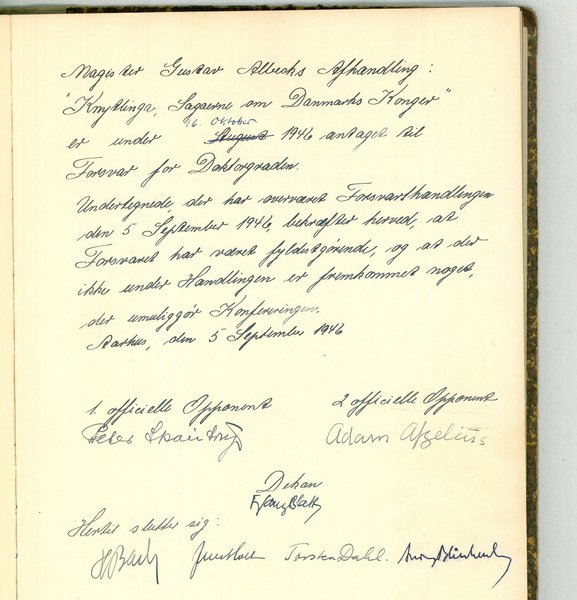 Magister Gustav Albecks Afhandling:
"Knytlinga, Sagaerne om Danmarks Konger"
16. Oktober
er under August 1946 antaget til
Forsvar for Doktorgraden.
Undertegnede der har overværet Forsvarshandlingen
den 5 September 1946, bekræfter herved, at
Forsvaret har været fyldestgørende, og at der
ikke under Handlingen er fremkommet noget,
der umuliggør Konfereringen.
Aarhus, den 5 September 1946
1. officielle Opponent
2 officielle Opponent
Peter Skautrup
Adam Afzelius
Dekan
Franz Blatt
Hertil slutter sig:
Torsten Dahl.